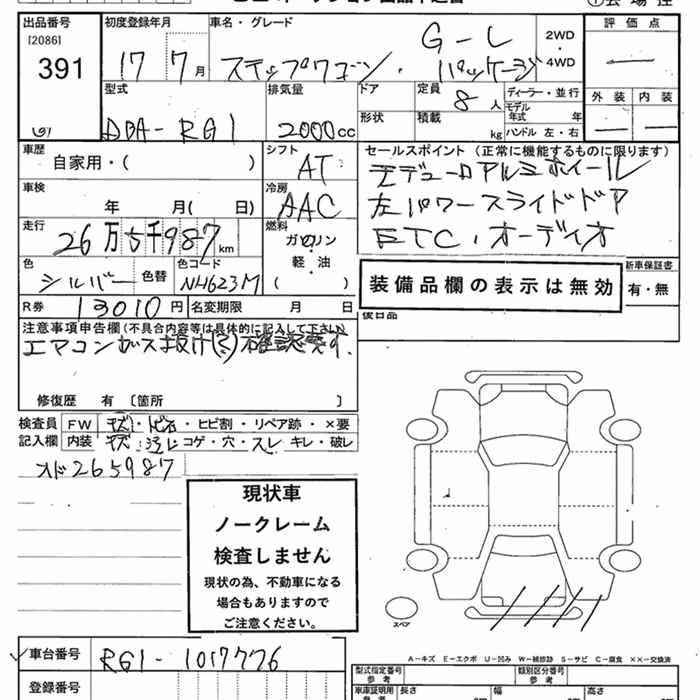 出品番号 初度登録年月 車名・グレード 2WD・4WD 評価点
[2086]
391
17 7月 ステップワゴン・ G-L パッケージ
外装 内装
型式 排気量 ドア 定員 ディーラー・並行
DBA-RG1 2000cc 8人 モデル年式 年
形状 積載 kg ハンドル 左・右
車歴 シフト セールスポイント (正常に機能するものに限ります)
自家用・( ) AT モデューロアルミホイール
車検 冷房 左パワースライドドア
年 月( 日) AAC ETC.オーディオ
走行 燃料
26万5千987km ガソリン・軽油
色 色替 色コード ( ) 新車保証書
シルバー NH623M 装備品欄の表示は無効 有・無
R券 13010円 名変期限 月 日 後日品
注意事項申告欄(不具合内容等は具体的に記入して下さい)
エアコンガス抜け(?)確認要す.
修復歴 有 [箇所 ]
検査員 FW キズ・トビ石・ヒビ割・リペア跡・×要
記入欄 内装 キズ・汚レ コゲ・穴・スレ キレ・破レ
メド265987
現状車
ノークレーム
検査しません
現状の為、不動車になる
場合もありますので
ご注意ください。
スペア
車台番号 RG1-1017776
A-キズ E-エクボ U-凹み W-補修跡 S-サビ C-腐食 ××-交換済
登録番号
型式指定番号 参考 類別区分番号 参考
車庫証明用 参考 長さ 幅 高さ